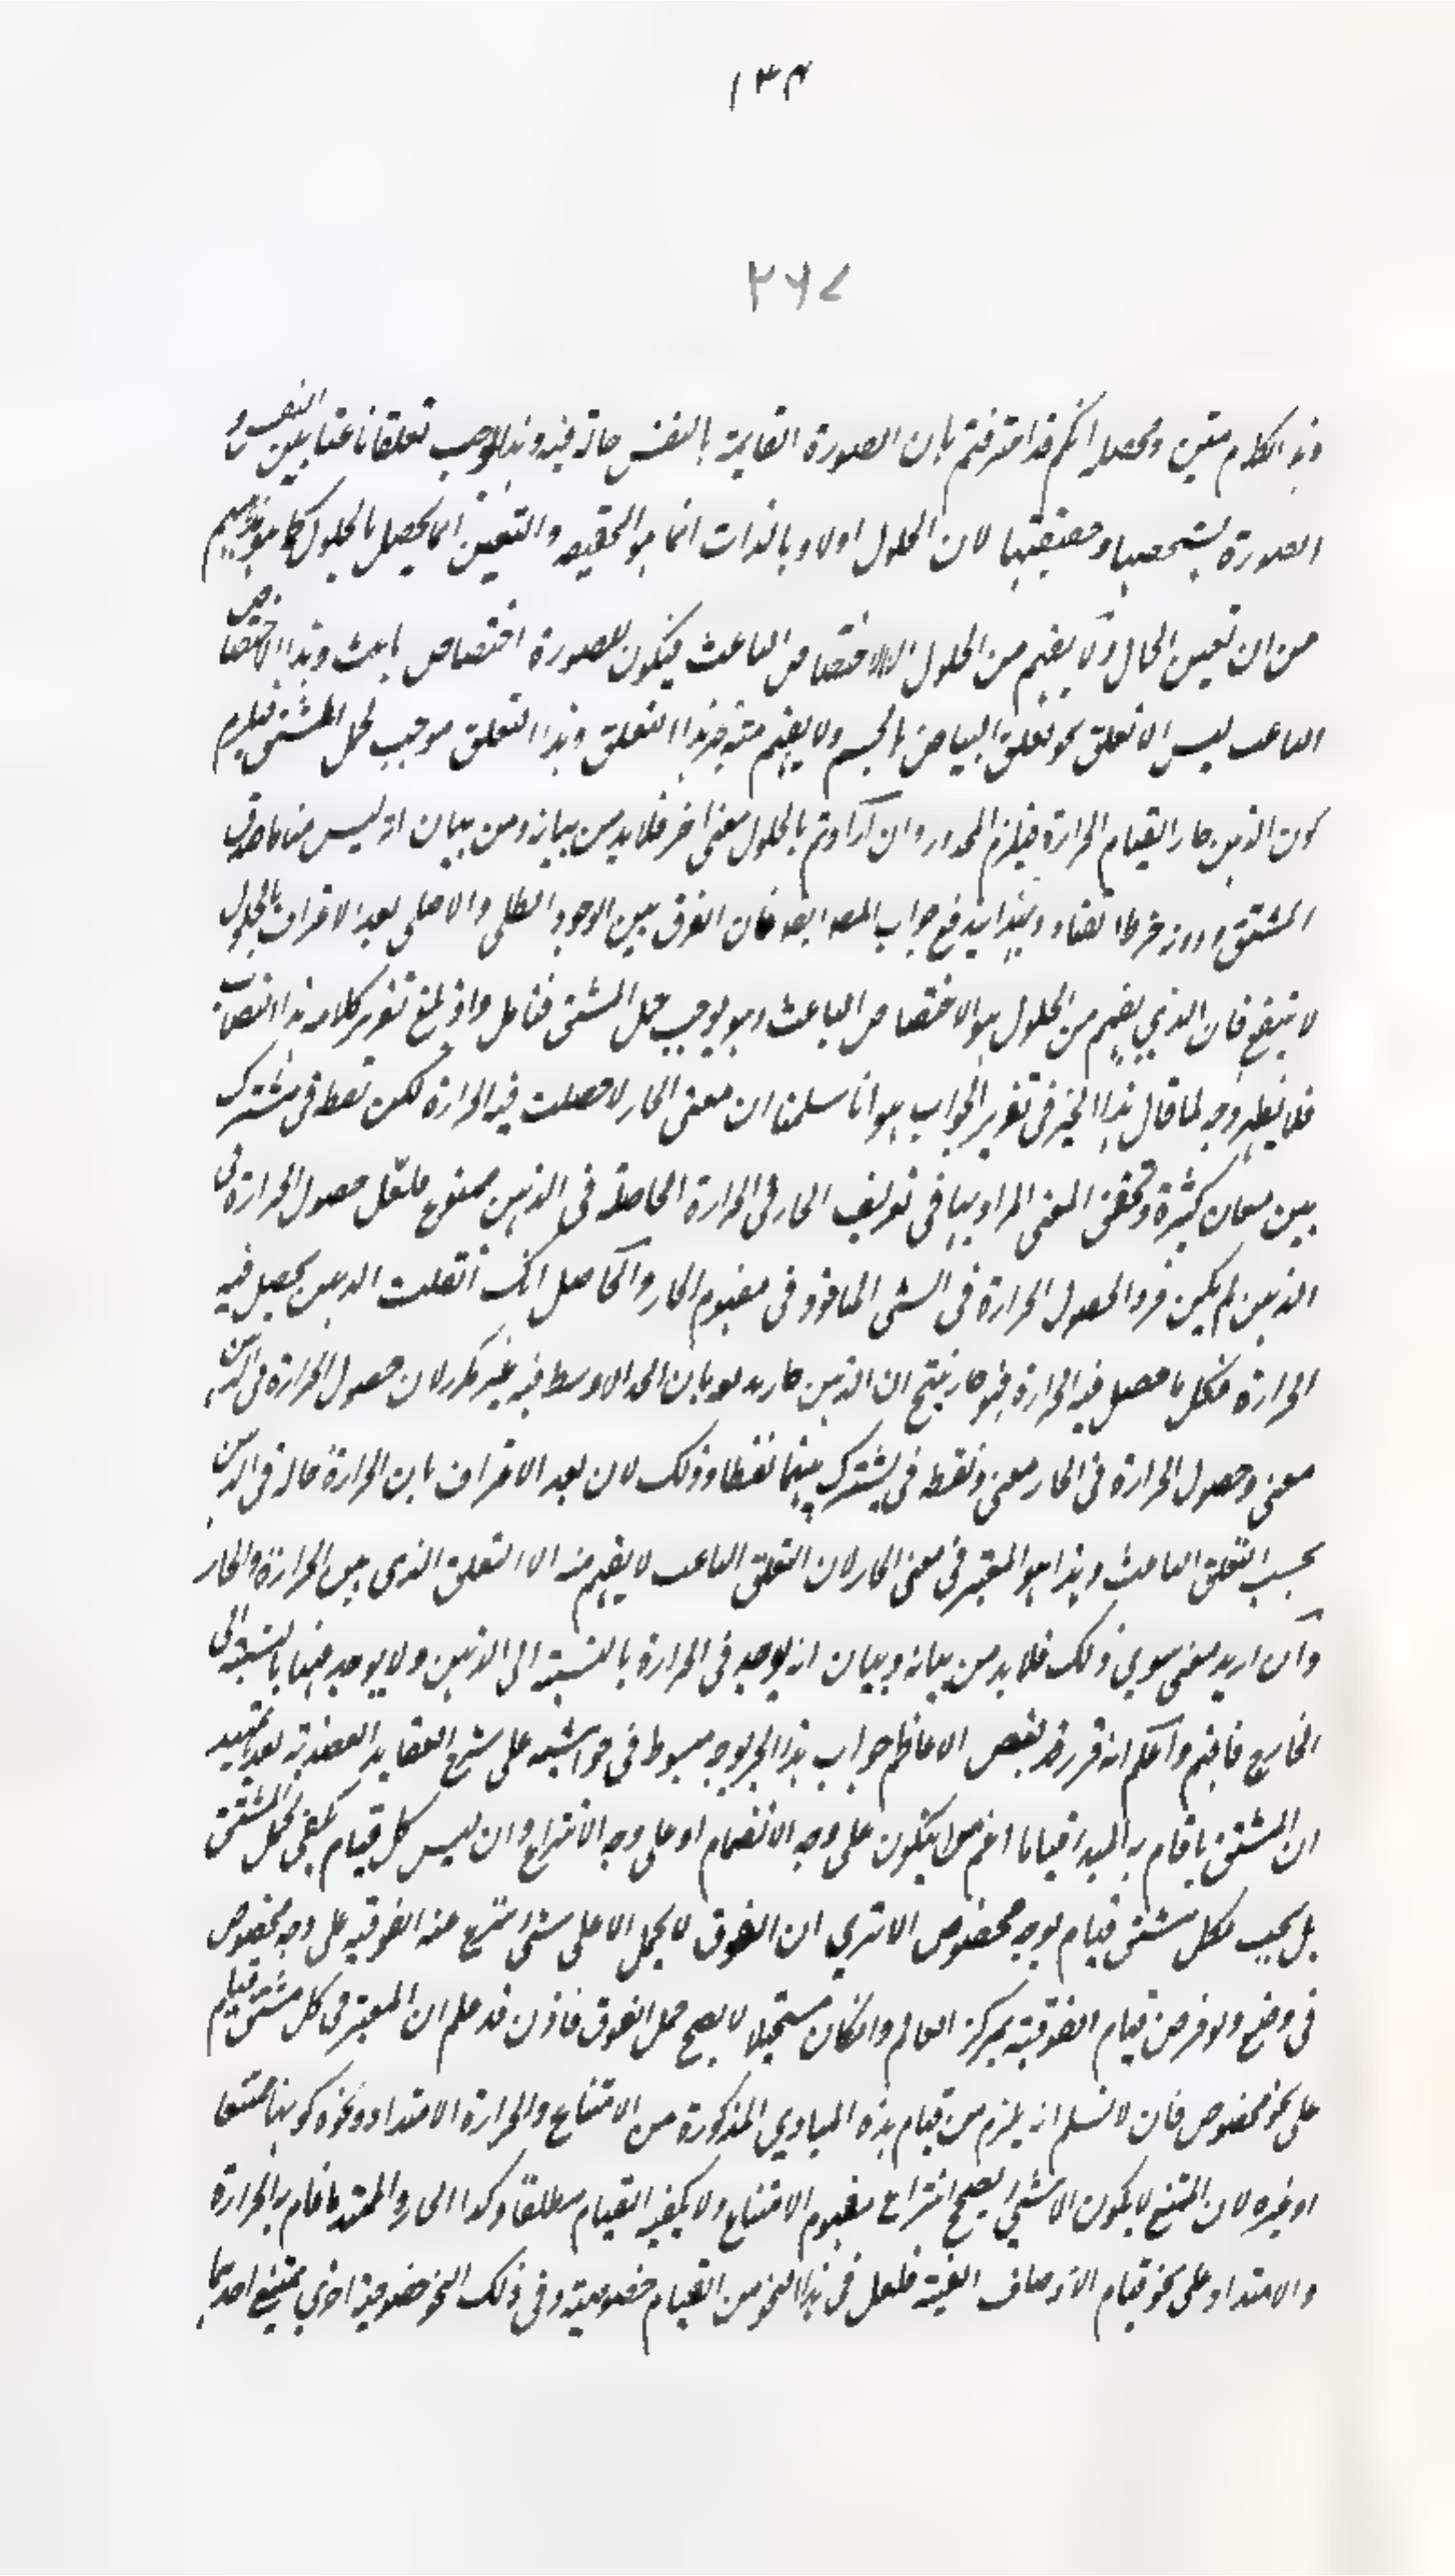 ١٣٤
٢٦٧
وهذا الكلام متين ومحصله انكم قد اعترفتم بان الصورة القايمة بالنفس حالة فيه وهذا يوجب تعلقا ناعتا بين النفس و
الصورة بشخصها وحقيقتها لان الحلول اولا وبالذات انما هو الحقيقة والتعين انما يحصل بالحلول كما هو
من ان تعين الحال ولا يفهم من الحلول الا الاختصاص الناعت فيكون للصورة اختصاص ناعت وهذا الاختصاص
الناعت ليس الا تعلق نحو تعلق البياض بالجسم ولا يفهم منه غير هذا التعلق وهذا التعلق موجب لحمل المشتق فيلزم
كون الذهن حارا لقيام الحرارة فيلزم المحذور وان اراد وتم بالحلول معنى اخر فلا بد من بيانه ومن بيان انه ليس مناط صدق
المشتق ودونه خرط القتاد وبهذا يندفع جواب المصـ ايضـ فان الفرق بين الوجود الظلي والاصلي بعد الاعتراف بالحلول
لا ينفع فان الذي يفهم من الحلول هو الاختصاص الناعت وهو يوجب حمل المشتق فتامل واذ بلغ تقرير كلامه هذا النصاب
فلا يظهر وجه لما قال هذا الحبر في تقرير الجواب هو انا سلمنا ان معنى الحار لا حصلت فيه الحرارة لكن لفظ في مشترك
بين معان كثيرة وتحقق المعنى المراد بها في تعريف الحار في الحرارة الحاصلة في الذهن ممنوع فلعل حصول الحرارة في
الذهن لم يكن فردا لحصول الحرارة في الشي الماخوذ في مفهوم الحار والحاصل انك ان قلت الذهن يحصل فيه
الحرارة فكل ما حصل فيه الحرارة فهو حار ينتج ان الذهن حار يدفع بان الحد الاوسط فيه غير مكرر لان حصول الحرارة في الذهن
معنى وحصول الحرارة في الحار معنى ولفظ في يشترك بينهما لفظا وذلك لان بعد الاعتراف بان الحرارة حالة في الذهن
بحسب التعلق الناعت وهذا هو المعتبر في معنى الحار لان التعلق الناعت لا يفهم منه الا التعلق الذي بين الحرارة والحار
وان اريد معنى سوى ذلك فلا بد من بيانه وبيان انه يوجد في الحرارة بالنسبة الى الذهن ولا يوجد فيها بالنسبة الى
الخارج فافهم واعلم انه قرر بعض الاعاظم جواب هذا الحبر بوجه مبسوط في حواشيه على شرح العقايد العضدية بعد تمهيد
ان المشتق ما قام به المبدا قياما اعم من ان يكون على وجه الانضمام او على وجه الانتزاع وان ليس كل قيام يكفي لحمل المشتق
بل يجب لكل مشتق قيام بوجه مخصوص الا ترى ان الفوق لا يحمل الا على شي انتزع عنه الفوقية على وجه مخصوص
في وضع ولو فرض قيام الفوقية بمركز العالم وان كان مستحيلا لا يصح حمل الفوق فاذن قد علم ان المعتبر في كل مشتق قيام
على نحو مخصوص فان لا نسلم انه يلزم من قيام هذه المبادي المذكورة من الامتناع والحرارة والامتداد ونحوه كونها ممتنعا
او غيره لان الممتنع لا يكون الا شي يصح انتزاع مفهوم الامتناع ولا يكفيه القيام مطلقا وكذا الحار والممتد ما قام به الحرارة
والامتداد على نحو قيام الاوصاف العينية فلعل في هذا النحو من القيام خصوصية وفي ذلك النحو خصوصية اخرى يمتنع احدهما